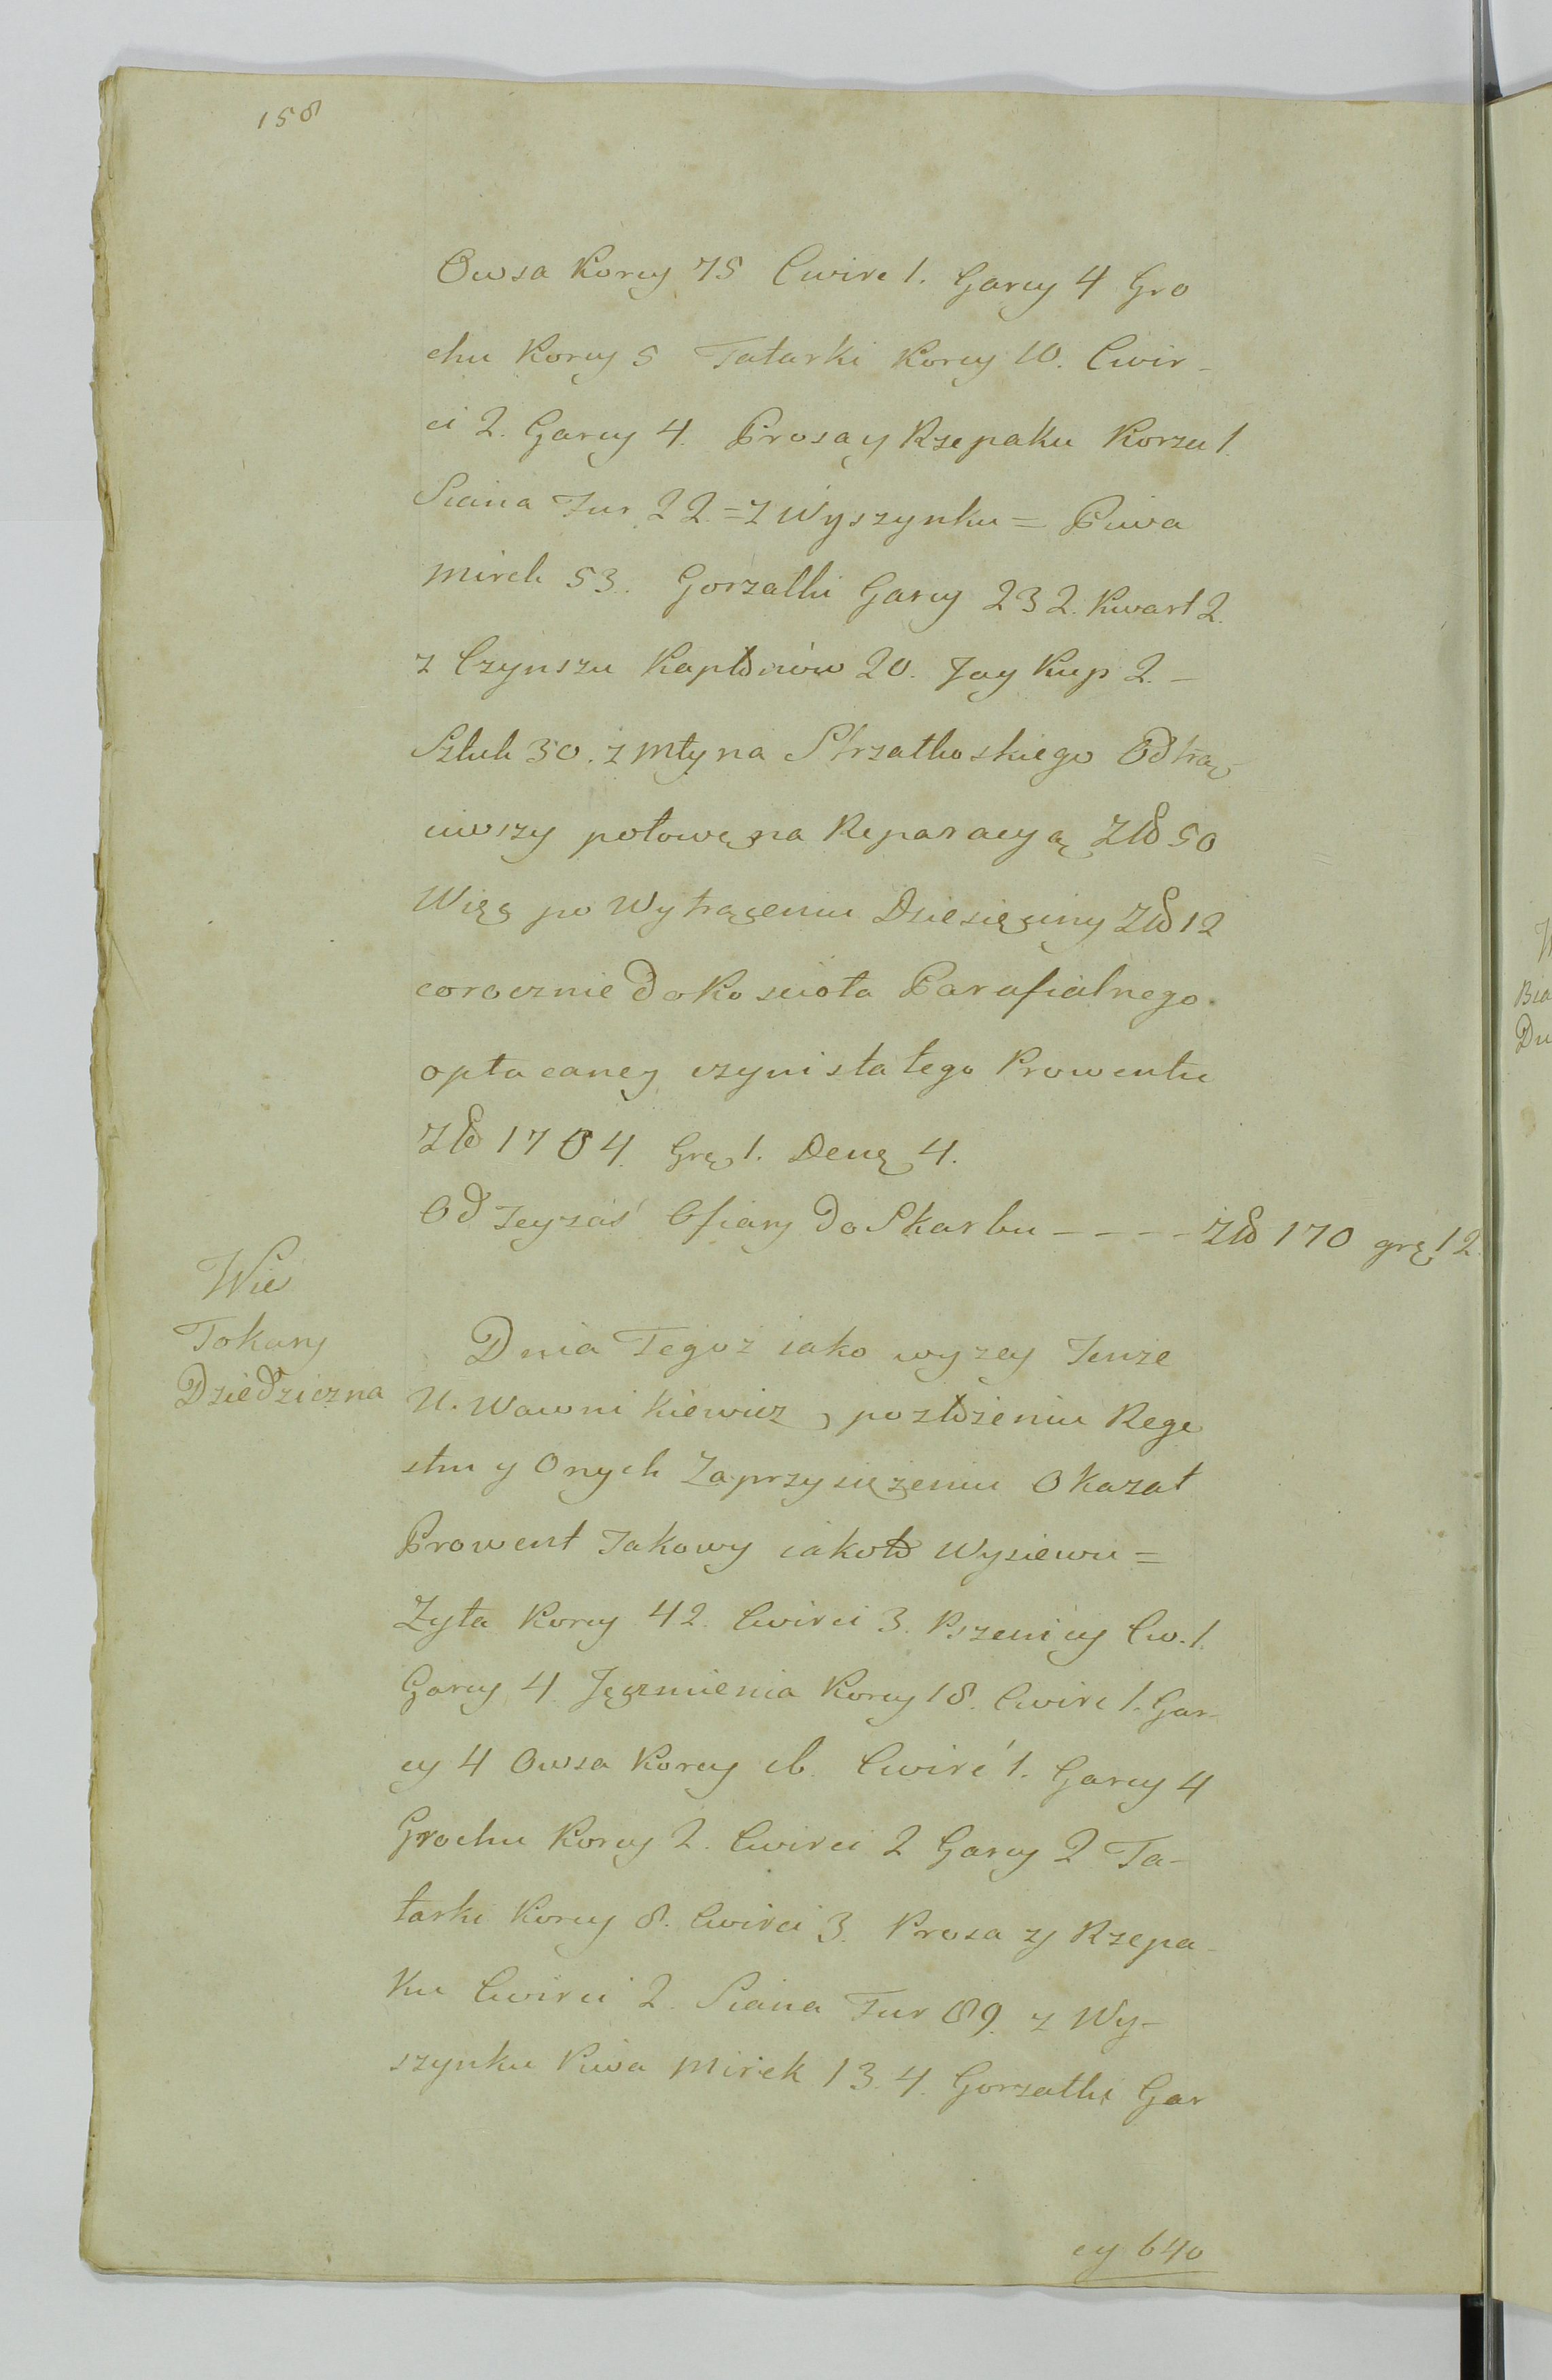 158
Owsa Korcy 75 Cwirc 1. Garcy 4 Gro
chu Korcy 5 Tatarki Korcy 10. Cwir-
ci 2. Garcy 4. Prosa y Rzepaku Korzec 1.
Siana Fur 22. = z Wyszynku = Piwa
Mirek 53. Gorzałki Garcy 232. Kwart 2.
z Czynszu Kapłonow 20. Jay Kup 2. -
Sztuk 30. z Młyna Strzałkoskiego Odtrąc
iwszy połowę na Reparacyą Zło 50
Więc po Wytrąceniu Dziesięciny Zło 12
corocznie do Kościoła Parafialnego
opłacaney czyni stałego Prowentu
Zło 1704. Grę 1. Denę 4.
Od Teyzaś Ofiary do Skarbu - - - - Zło 170 grę 12.
Wieś
Tokary
Dziedziczna
Dnia Tegoż iako wyzey Tenże
U. Wawnikiewicz, po złożeniu Rege
stru y Onych Zaprzysiężeniu Okazał
Prowent Takowy iakoto Wysiewu =
Zyta Korcy 42. Cwirci 3. Pszenicy Cw. 1.
Garcy 4 Jęczmienia Korcy 18. Cwirc 1. Gar-
cy 4 Owsa Korcy 16. Cwirć 1. Garcy 4
Grochu Korcy 2. Cwirci 2 Garcy 2 Ta-
tarki Korcy 8. Cwirci 3. Prosa y Rzepa-
ku Cwirci 2. Siana Fur 89. z Wy-
szynku Piwa Mirek 13.4. Gorzałki Gar
cy 640